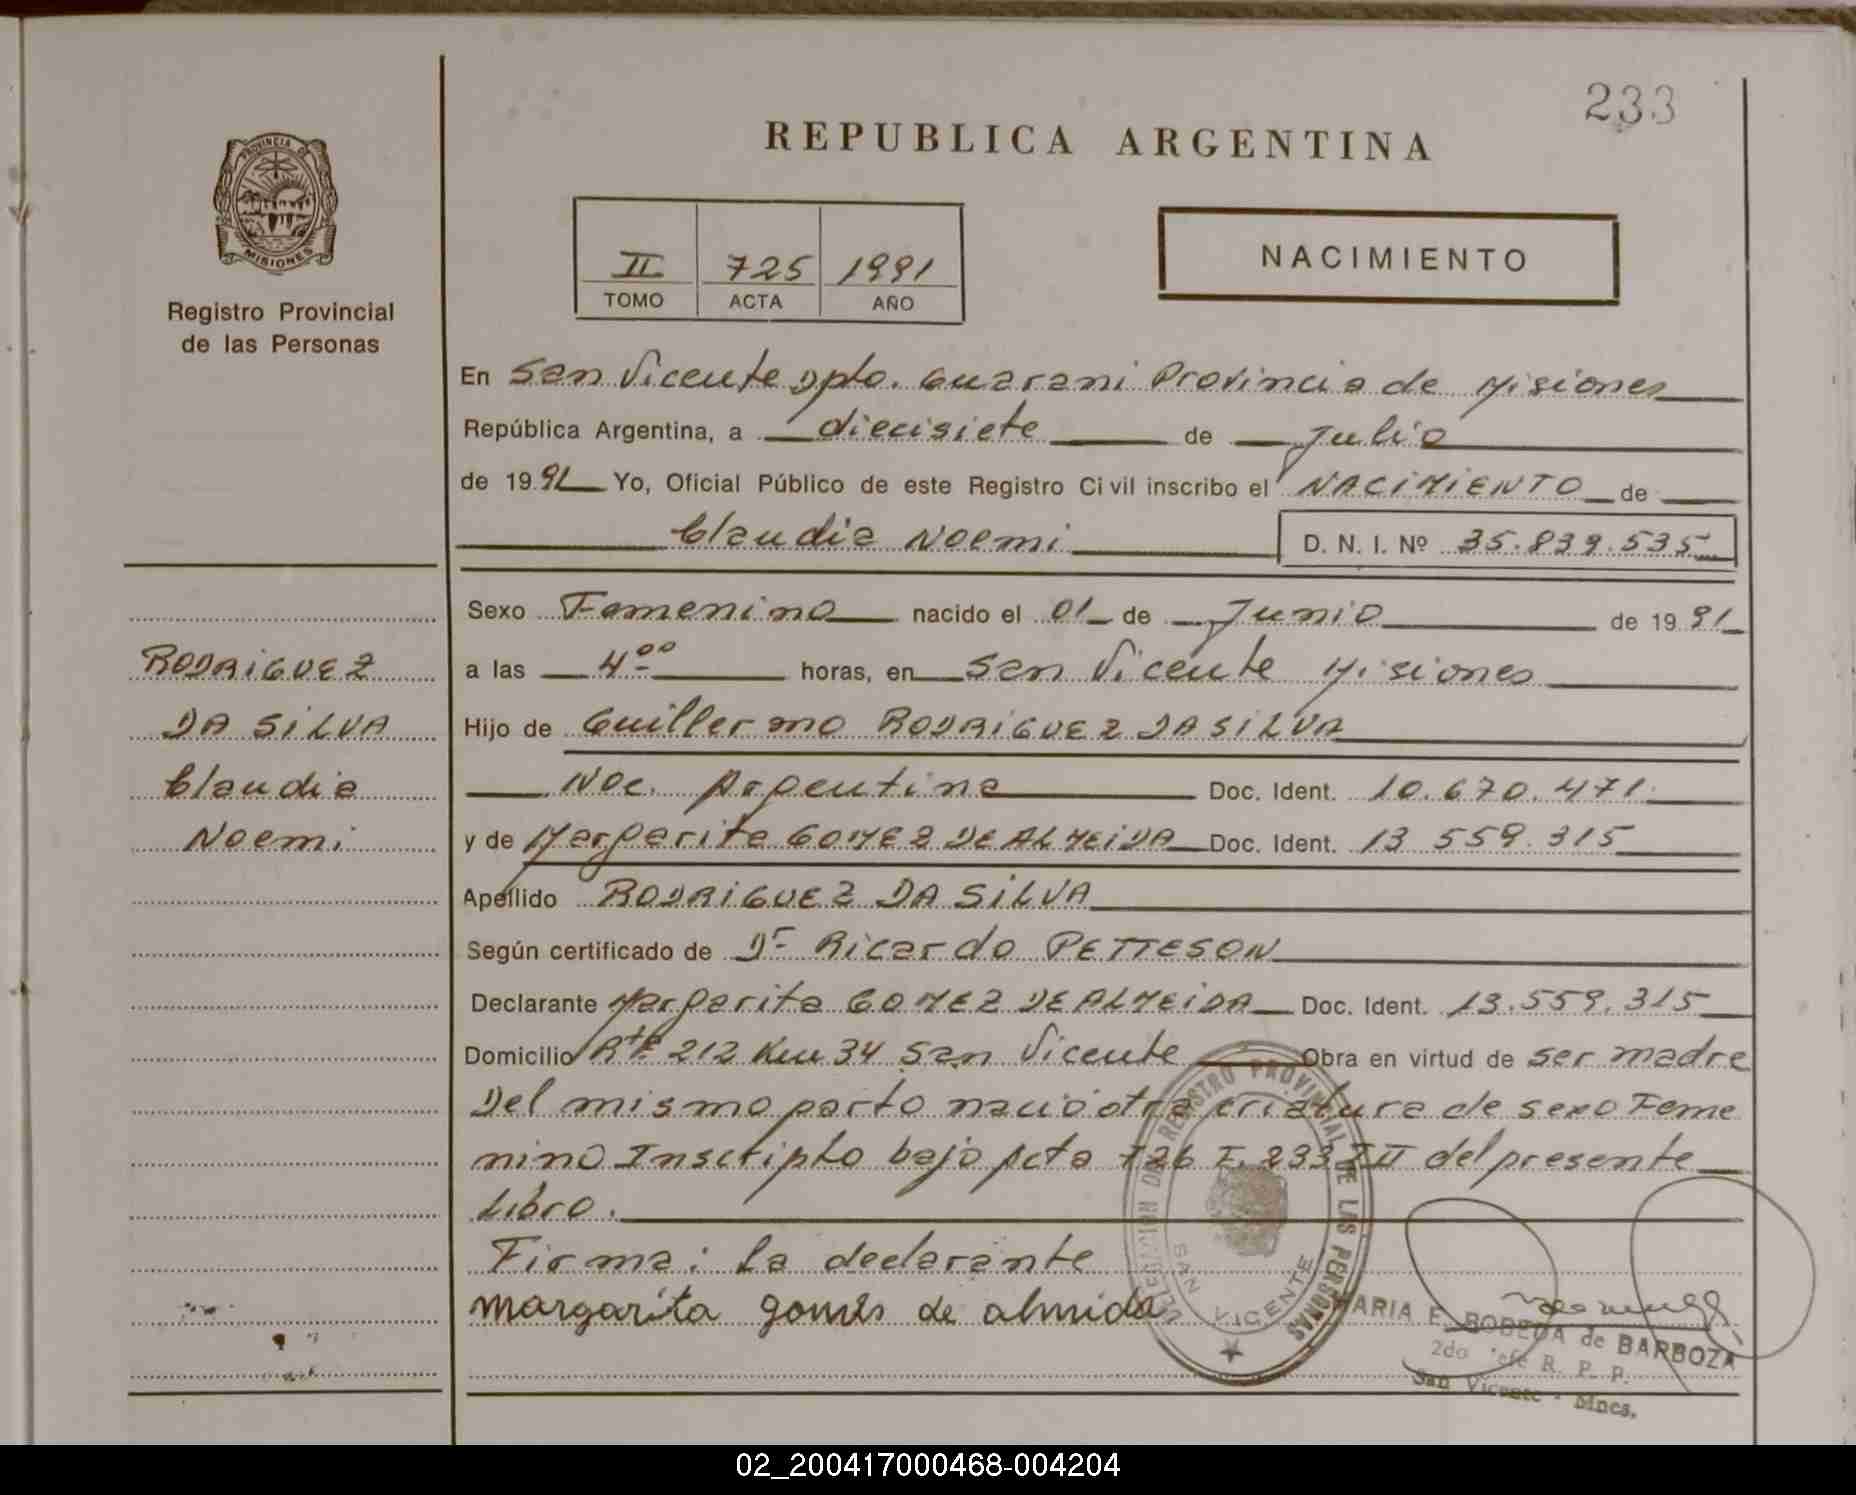 233
REPUBLICA ARGENTINA
PROVINCIA DE
MISIONES
Registro Provincial
de las Personas
II 725 1991
TOMO ACTA AÑO
NACIMIENTO
En San Vicente Dpto. Guarani Provincia de Misiones
República Argentina, a diecisiete de Julio
de 1991 Yo, Oficial Público de este Registro Civil inscribo el NACIMIENTO de
Claudia Noemi D. N. I. Nº 35.839.535
Sexo Femenino nacido el 01 de Junio de 1991
a las 4⁰⁰ horas, en San Vicente Misiones
Hijo de Guillermo RODRIGUEZ DA SILVA
Nac. Argentina Doc. Ident. 10.670.471
y de Margarita GOMEZ DE ALMEIDA Doc. Ident. 13 559.315
Apellido RODRIGUEZ DA SILVA
Según certificado de Dr Ricardo PETTESON
Declarante Margarita GOMEZ DE ALMEIDA Doc. Ident. 13.559.315
Domicilio Rta 212 Km 34 San Vicente Obra en virtud de ser madre
Del mismo parto nació otra criatura de sexo Feme
nino Inscripto bajo Acta 726 F. 233 T II del presente
Libro.
Firma: La declarante
margarita gomes de almida
RODRIGUEZ
DA SILVA
Claudia
Noemi
DELEGACION DEL REGISTRO PROVINCIAL DE LAS PERSONAS
SAN VICENTE
MARIA E. BOBEDA de BARBOZA
2do Jefe R. P. P.
San Vicente - Mnes.
02_200417000468-004204